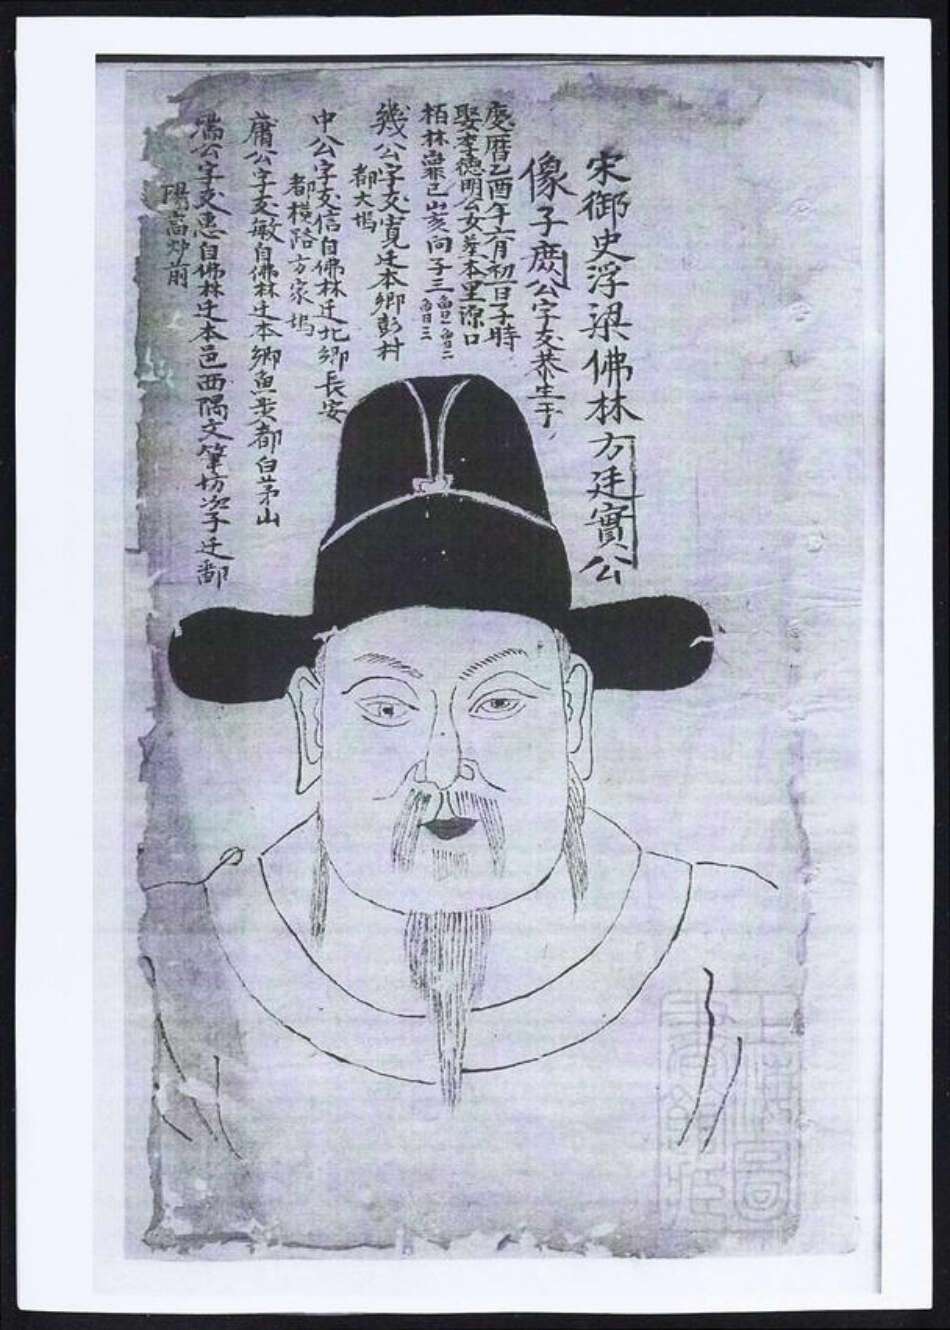 宋御史浮梁佛林方廷實公
像子庶公字文恭生于
慶曆乙酉年六月初一日子時
娶李德明公女葬本里源口
栢林巳山亥向子三
幾公字文寬迁本鄉彭村
都大塢
中公字文信自佛林迁北鄉長安
都橫路方家塢
庸公字文敏自佛林迁本鄉魚步都白茅山
公字文惠自佛林迁本邑西隅文筆坊次子迁鄱
陽高沙前